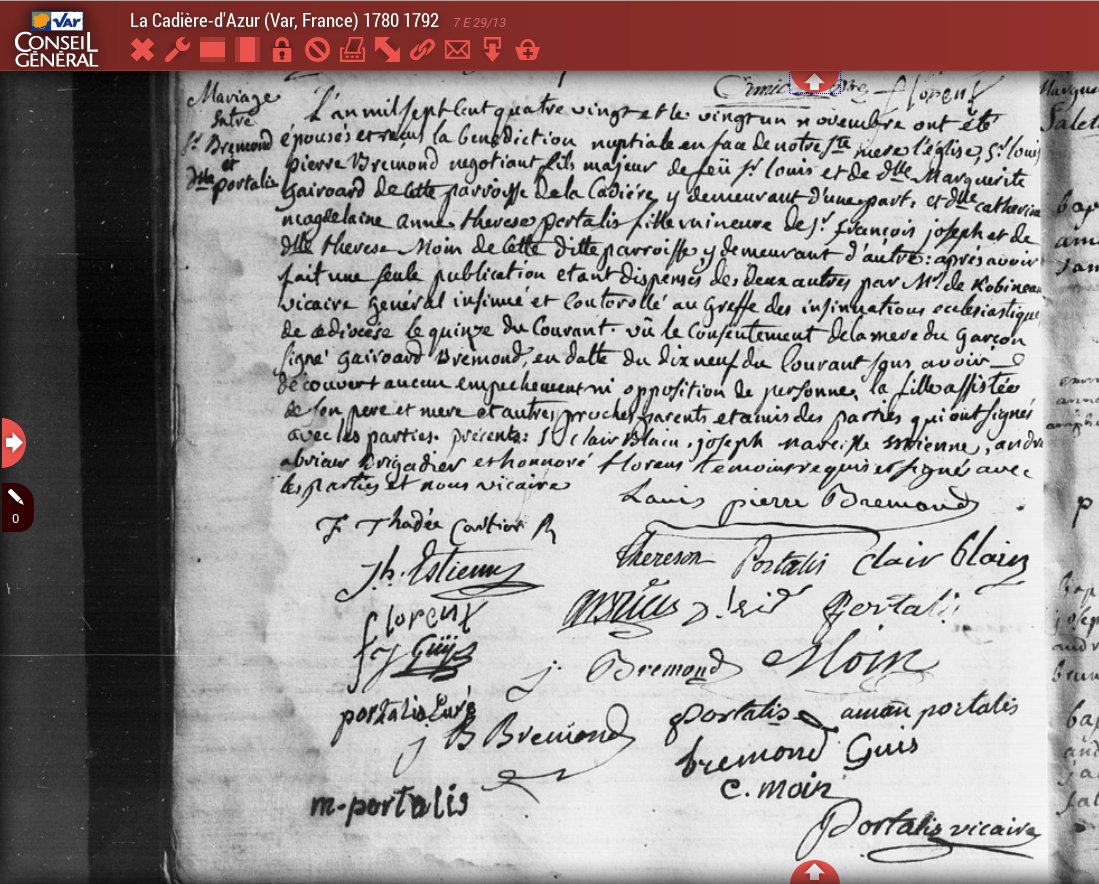 Var
CONSEIL
GÉNÉRAL
La Cadière-d'Azur (Var, France) 1780 1792 7 E 29/13
florens
Mariage
Entre
Sr. Bremond
et
dlle portalis
L'an mil sept cent quatre vingt et le vingt un novembre ont été
épousés et reçus la benediction nuptiale en face de notre Ste mere l'église, Sr. louis
pierre Bremond negotiant fils majeur de feü Sr. louis et de dlle Marguerite
gairoard de cette parroisse de la Cadiére y demeurant d'une part: et dlle catherine
magdelaine anne therese portalis fille mineure de Sr. françois joseph et de
dlle therese Moin de cette ditte parroisse y demeurant d'autre: aprés avoir
fait une seule publication et ant dispensés des deux autres par Mr. de Robineau
vicaire general insinué et controllé au greffe des insinuations ecclesiastiques
de ce diocése le quinze du Courant. vû le Consentement de la mere du garçon
signé gairoard Bremond, en datte du dix neuf du Courant sans avoir
découvert aucun empechement ni opposition de personne, la fille assistée
de son pere et mere et autres proches parents et amis des parties qui ont signés
avec les parties. présents: Sr. clair Blain, joseph narcisse estienne, andré
abriau brigadiér et honnoré florens temoins requis et signés avec
les parties et nous vicaire
Louis pierre Bremond
F. Thadée
Thereson Portalis clair blain
Jh. Estienne
portali
florens
Guijs
j. Bremond Moin
portalis Curé
portalis aman portalis
j B Bremond
bremond Guis
c. moin
m. portalis
Portalis vicaire
0